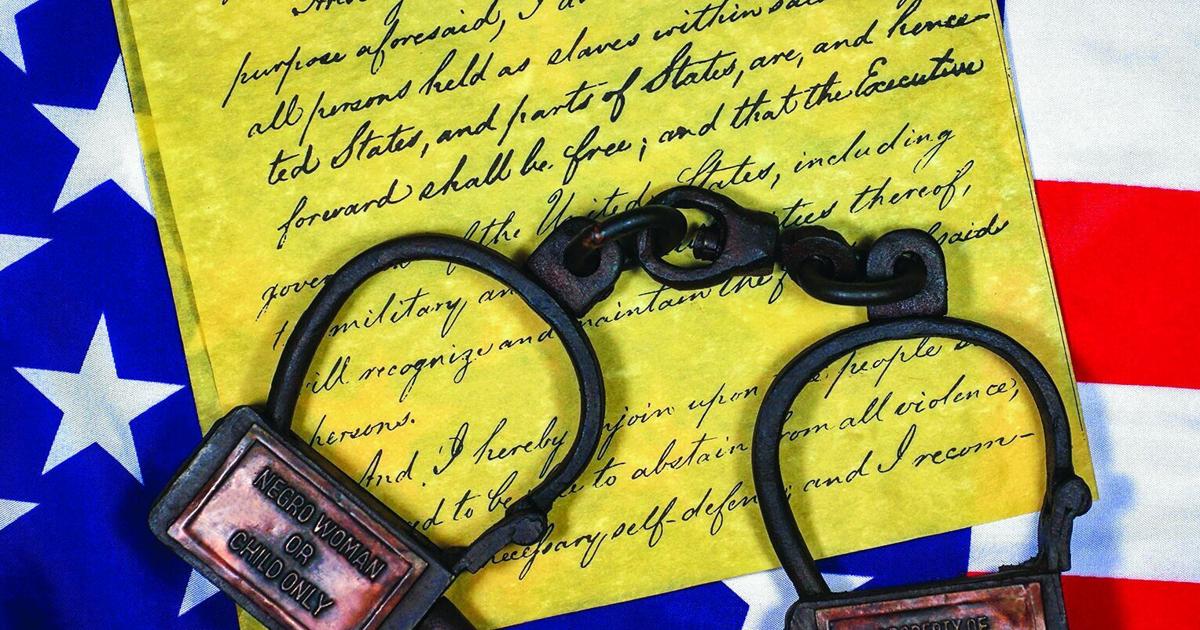 purpose aforesaid, I
all persons held as slaves within said
ted States, and parts of States, are, and hence-
forward shall be free; and that the Executive
of the United States, including
military, and thereof,
will recognize and maintain the said
persons.
And I hereby enjoin upon the people
to be to abstain from all violence,
necessary self-defence; and I recom-
NEGRO WOMAN
OR
CHILD ONLY
PROPERTY OF